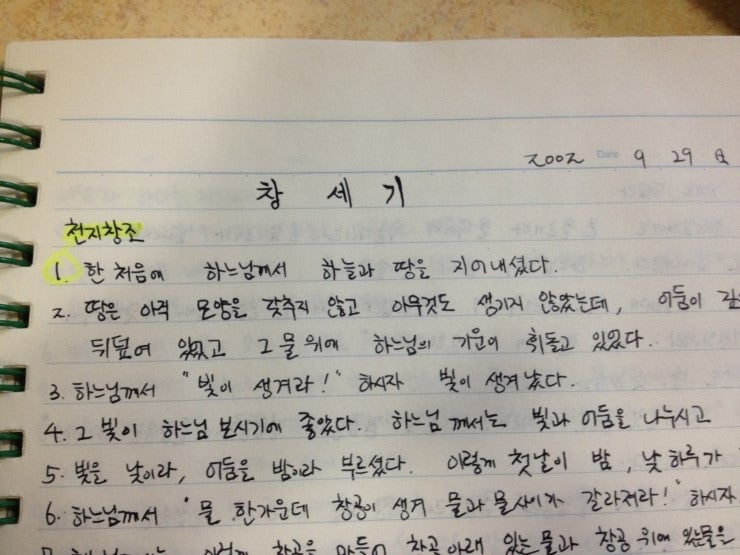 2002 Date 9 29
창 세 기
천지창조
1. 한 처음에 하느님께서 하늘과 땅을 지어내셨다.
2. 땅은 아직 모양을 갖추지 않고 아무것도 생기지 않았는데, 어둠이
뒤덮여 있었고 그 물 위에 하느님의 기운이 휘돌고 있었다.
3. 하느님께서 "빛이 생겨라!" 하시자 빛이 생겨났다.
4. 그 빛이 하느님 보시기에 좋았다. 하느님께서는 빛과 어둠을 나누시고
5. 빛을 낮이라, 어둠을 밤이라 부르셨다. 이렇게 첫날이 밤, 낮 하루가
6. 하느님께서 "물 한가운데 창공이 생겨 물과 물 사이가 갈라져라!" 하시자
이렇게 창공을 만들어 창공 아래 있는 물과 창공 위에 있는 물을